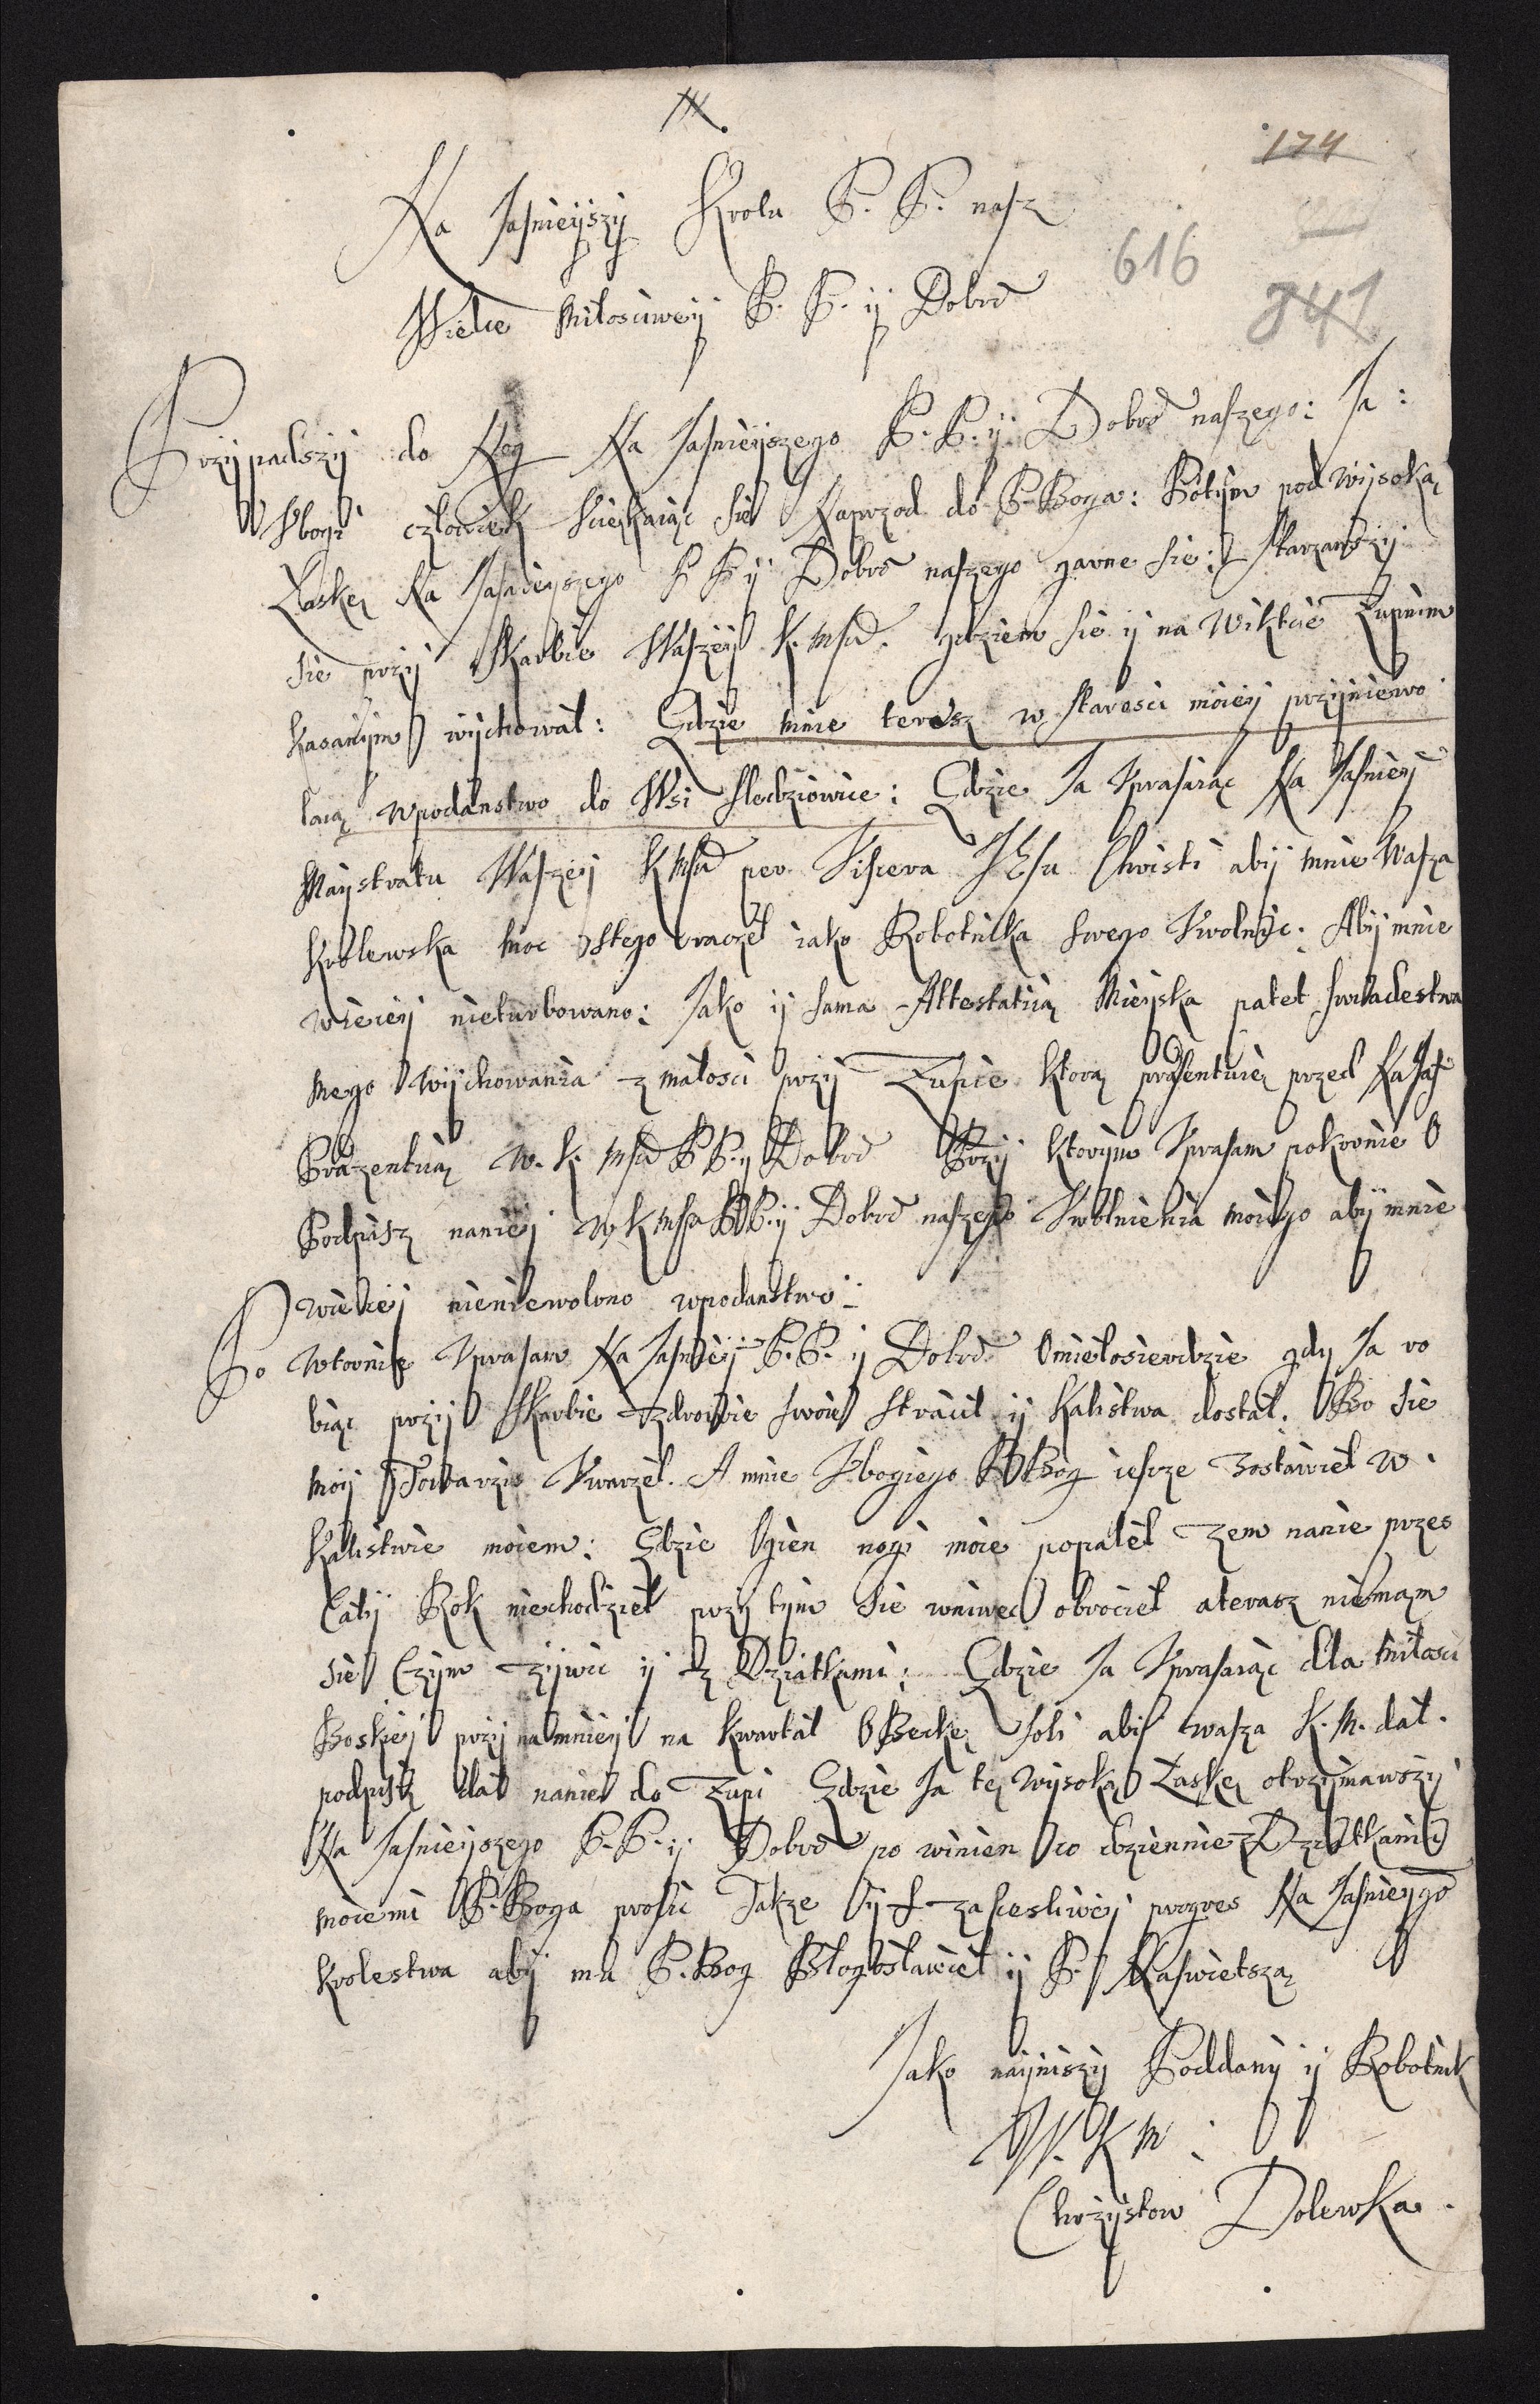 174
616
841
Na Jasnieyszy Krolu P. P. nasz
Wielce Miłosciwey P. P. ÿ Dobrd
Przÿpadszÿ do Nog Na Jasnieÿszego P. P. ÿ Dobrd naszego: Ja:
Vbogi człowiek scieKaiąc sie Naprzod do P. Boga: Potÿm pod wÿsoką
Łaskę Na Jasnieyszego P P ÿ Dobrd naszego garne sie: starzawszÿ
sie przÿ Skarbie Waszeÿ K. Msci. gdziem sie ÿ na Wiktcie Zupnim
Kasanÿm wÿchował: Gdzie mnie terasz w starosci moieÿ przÿniewo
laią wpodanstwo do Wsi sledziowice: Gdzie Ja Vprasaiąc Na Jasnieÿ
Maÿstratu Waszeÿ K Msci per Viscera JEsu Christi abÿ mnie Wasza
Krolewska Moc stego raczeł iako Robotnika swego Vwolnÿc: Abÿ mnie
wiecieÿ nieturbowano: Jako ÿ sama Attestatią Mieÿska patet swiadestwa
mego Wÿchowania z małosci przÿ Zupie ktorą præsentuię przed NaJas
Præzentią W. K. Msci P P. ÿ Dobrd Przÿ ktorÿm Vprasam pokornie O
Podpisz nanieÿ W K Msci P P. ÿ Dobrd naszego Vwolnienia moiego abÿ mnie
wiecieÿ nieniewolono wpodanstwo:
Po Wtornie Vprasam Na Jasnieÿ P. P. ÿ Dobrd Omiełosierdzie gdy Ja ro
biąc przÿ Skarbie zdrowie swoie stracił ÿ Kalistwa dostał. Bo sie
moÿ Towarzis Vwarzeł. A mnie Vbogiego P Bog iescze zostawieł w
Kalistwie moiem: Gdzie Ogien nogi moie popaleł zem nanie przes
Całÿ Rok niechodzieł przÿ tÿm sie wniwec obrocieł aterasz niemam
sie Czÿm zÿwic ÿ z Dziatkami: Gdzie Ja Vprasaiąc dla Miłosci
Boskieÿ przÿnamnieÿ na kwartał OBeckę soli abis wasza K. M. dał.
podpisz dał nanie do Zupi Gdzie Ja tę Wysoką Łaskę otrzÿmawszÿ
Na Jasnieyszego P. P. ÿ Dobrd po winien co dziennie z Dziatkami
moiemi P. Boga prosic Takze ÿ szasceslivieÿ progres Na Jasnieÿgo
krolestwa abÿ mu P. Bog Błogosławieł ÿ P. Naswietszą
Jako naÿniszÿ Poddanÿ ÿ Robotnik
W. K M:
Chrzÿstow Dolewka.